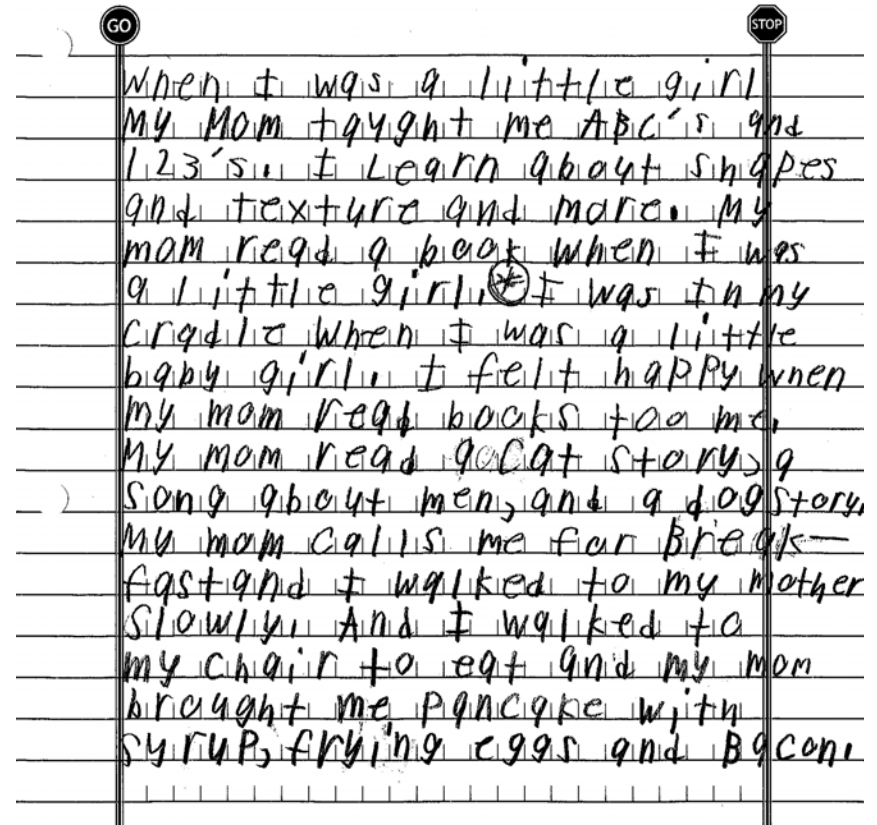 GO STOP
When I was a little girl
My Mom taught me ABC's and
123's. I Learn about shapes
and texture and more. My
mom read a book when I was
a little girl. * I was In my
cradle when I was a little
baby girl. I felt happy when
my mom read books too me.
My mom read a Cat story, a
song about men, and a dog story.
My mom calls me for Break-
fast and I walked to my mother
slowly. And I walked to
my chair to eat and my mom
brought me pancake with
syrup, frying eggs and Bacon.